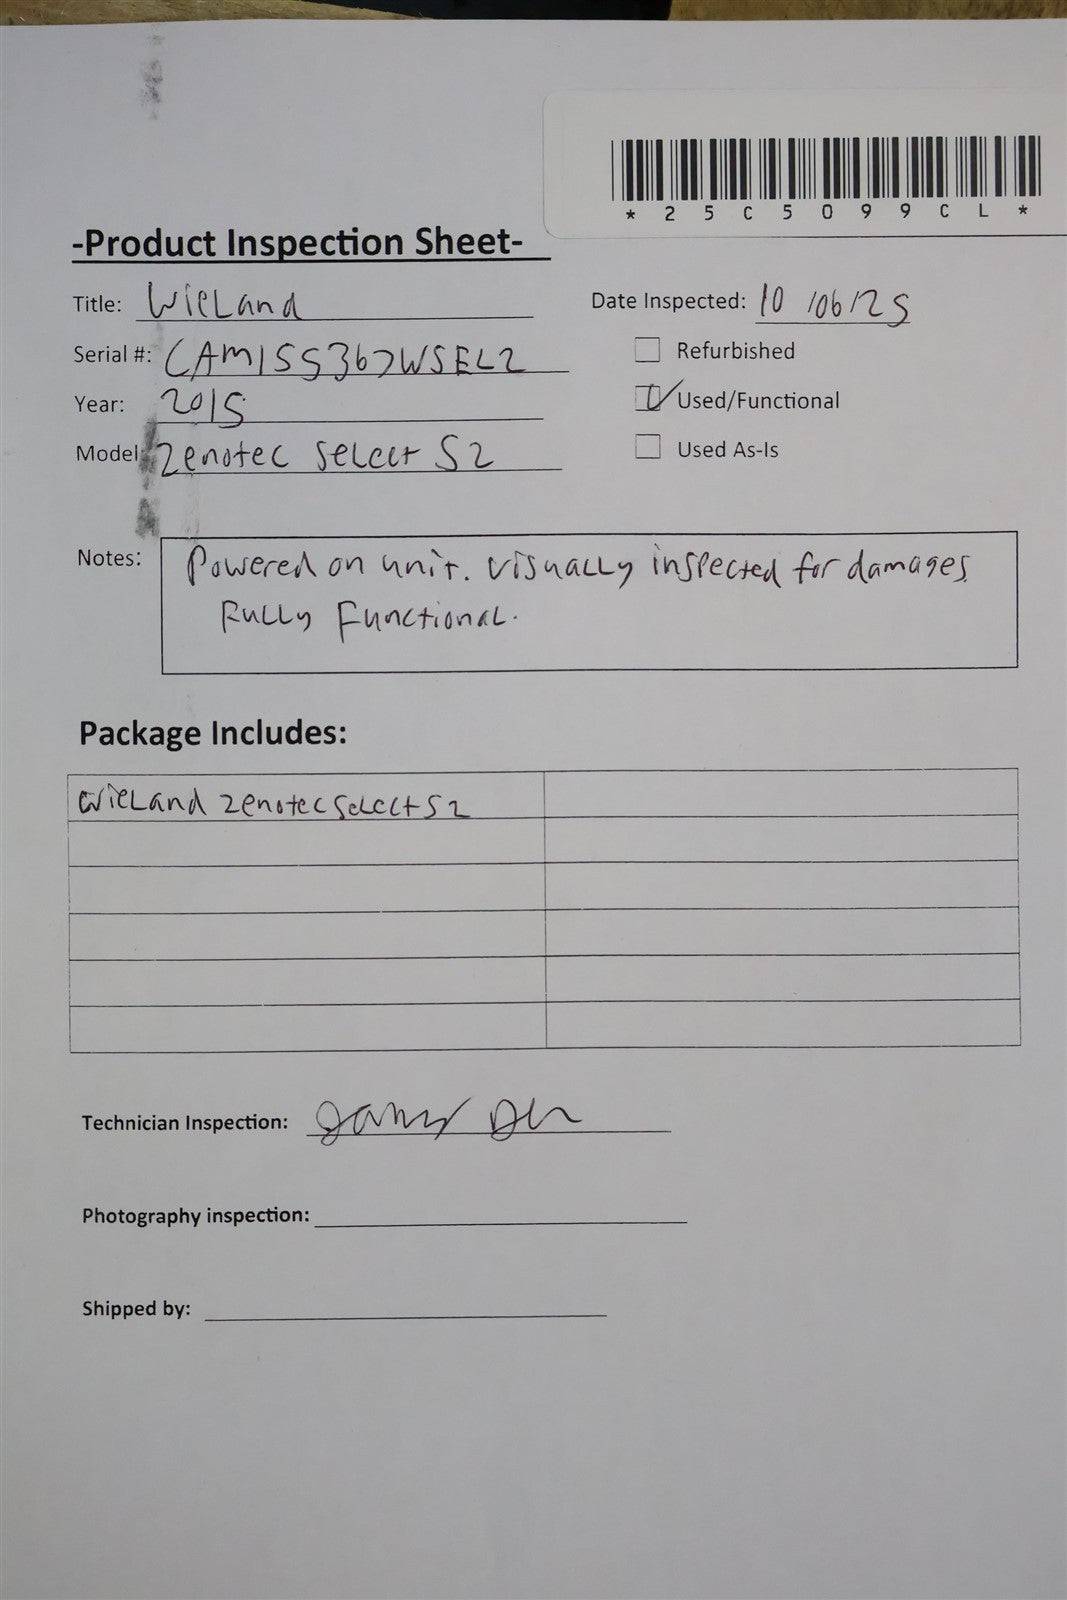 *25C5099CL*
-Product Inspection Sheet-
Title: Wieland
Date Inspected: 10/06/25
Serial #: CAM155367WSEL2
Refurbished
Year: 2015
Used/Functional
Model: Zenotec Select S2
Used As-Is
Notes: Powered on unit. Visually inspected for damages.
Fully Functional.
Package Includes:
Wieland Zenotec Select S2
Technician Inspection:
Photography inspection:
Shipped by: